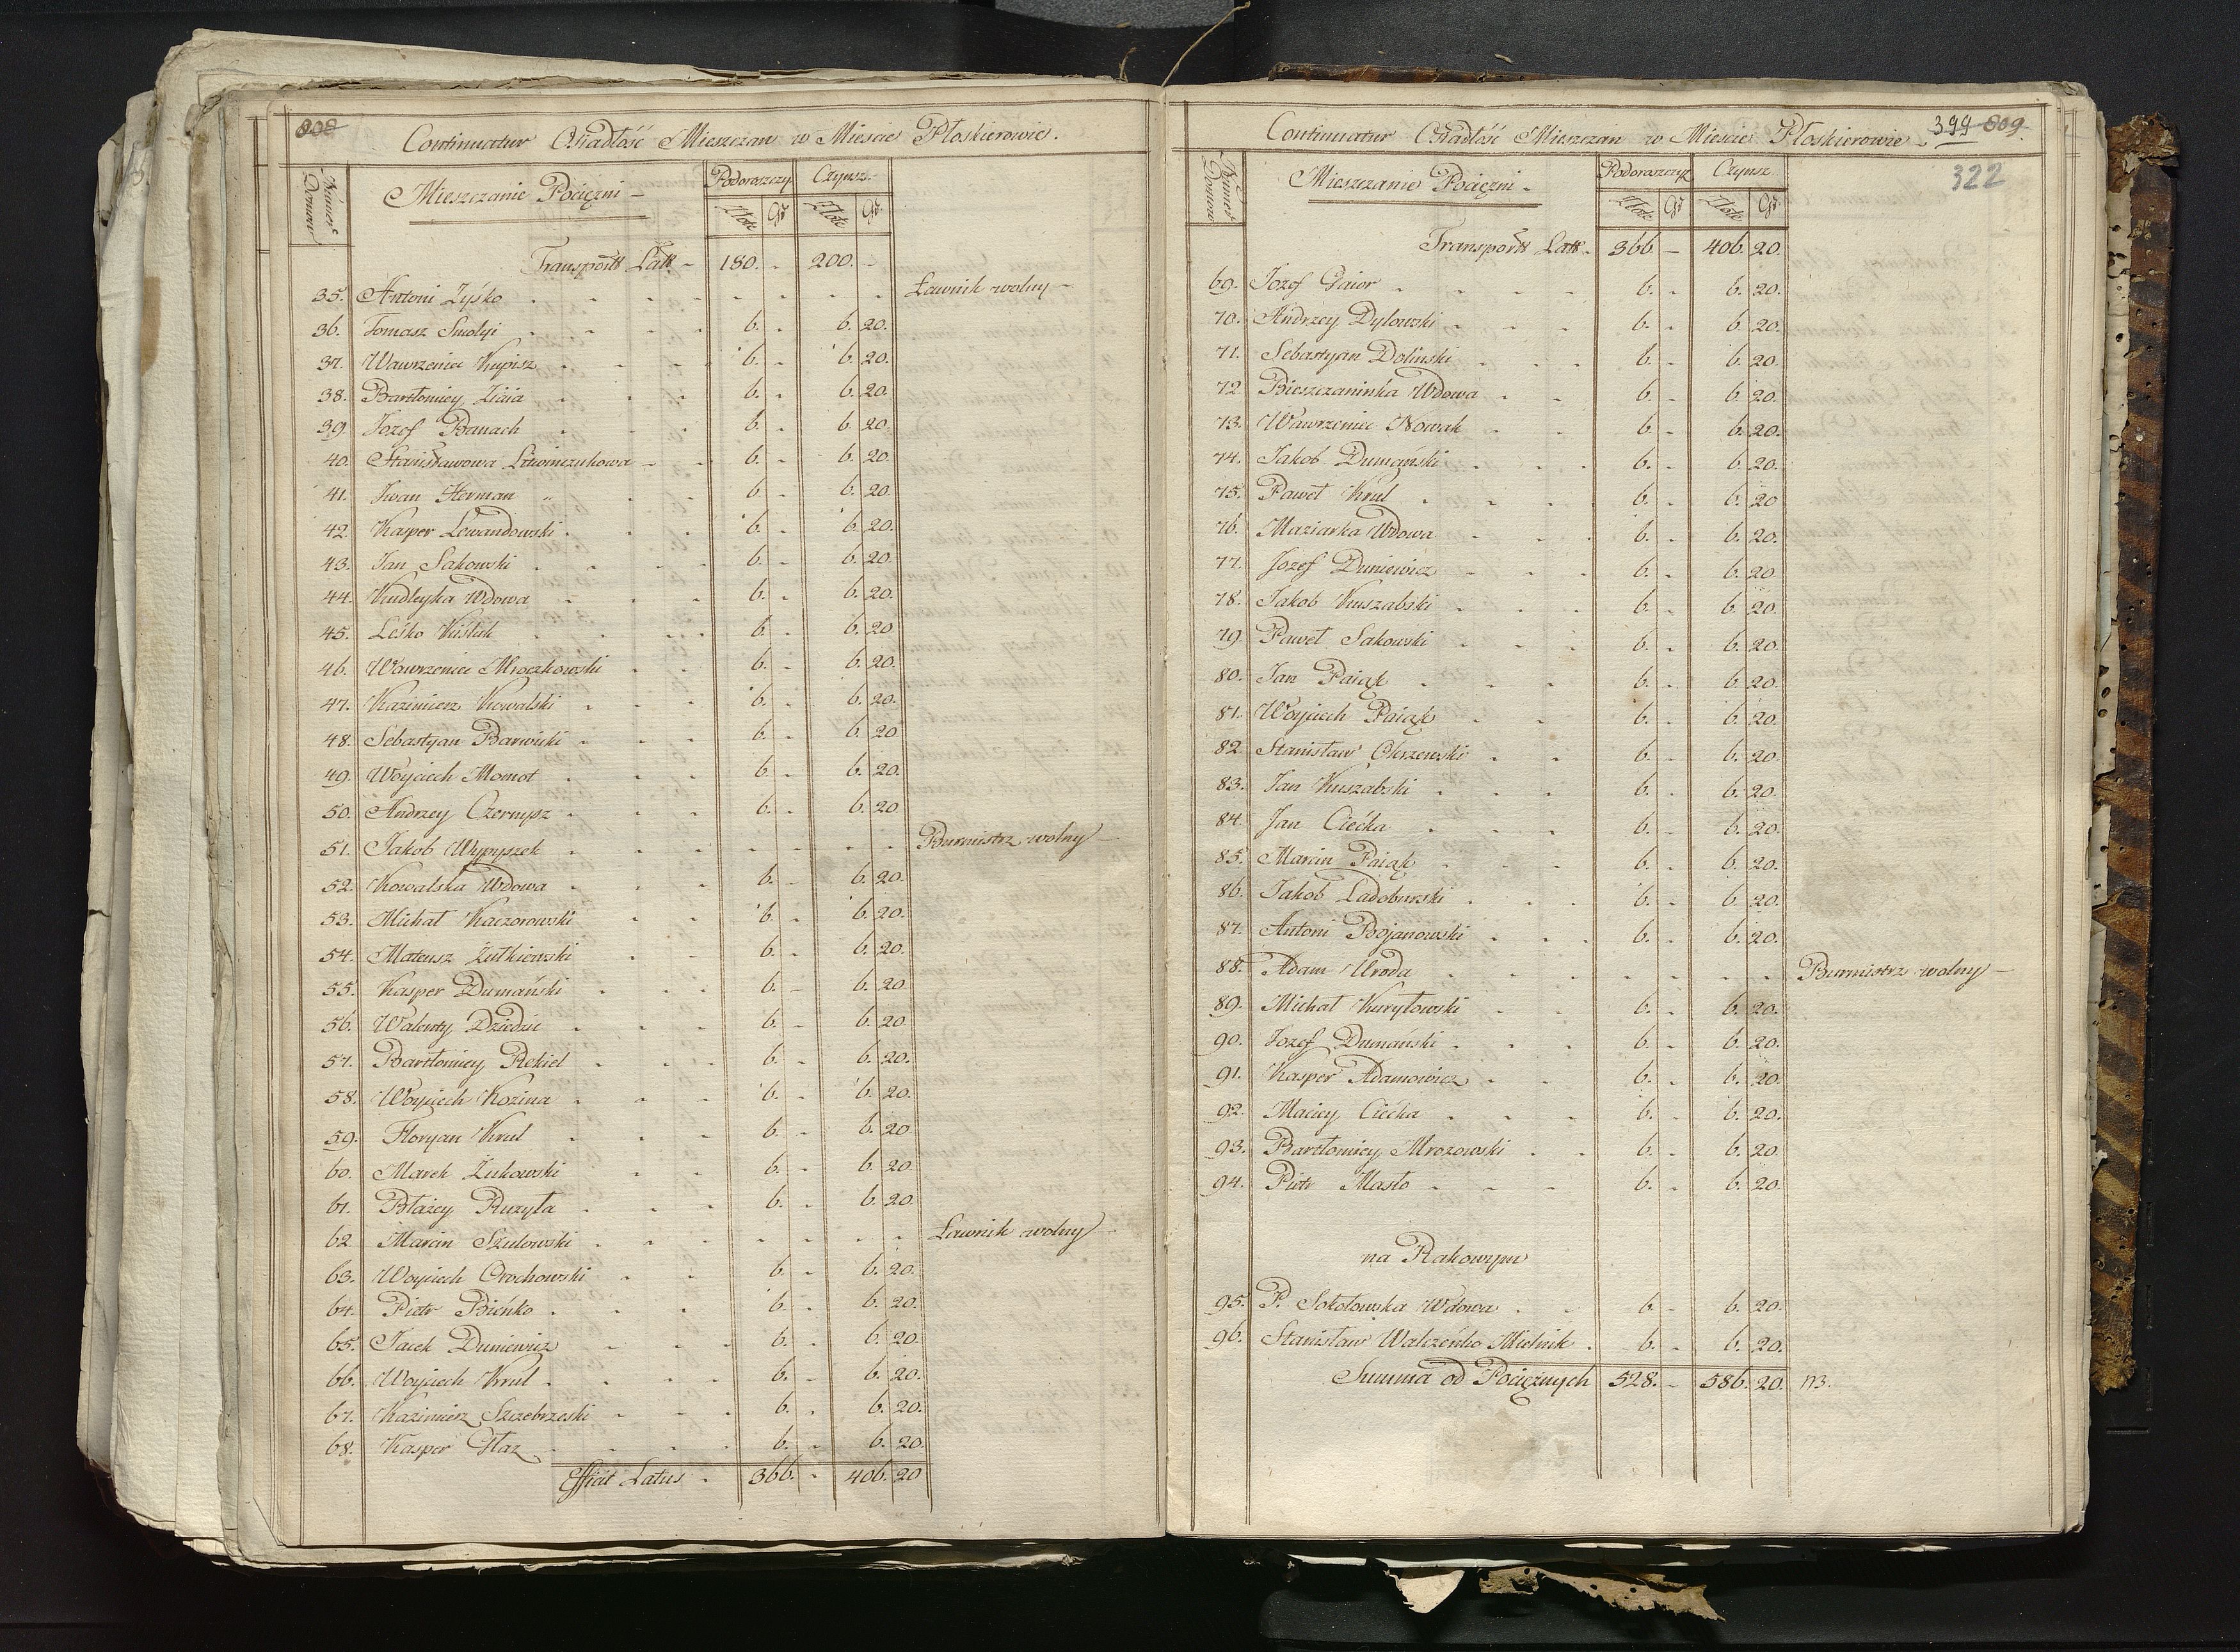 808
Continuatur Osiadłość Mieszczan w Mieście Płoskierowie.
Numer Domow
Mieszczanie Pociężni
Podoroszczyz Czynsz
Złote Gr Złote Gr
Transports Latt 180. - 200. -
35. Antoni Zyśko Ławnik wolny
36. Tomasz Smolyi 6. - 6. 20.
37. Wawrzeniec Kupisz 6. - 6. 20.
38. Bartłomiey Ziaia 6. - 6. 20.
39. Jozef Banach 6. - 6. 20.
40. Stanisławowa 6. - 6. 20.
41. Jwan Herman 6. - 6. 20.
42. Kasper Lewandowski 6. - 6. 20.
43. Jan Sakowski 6. - 6. 20.
44. Kudleyka Wdowa 6. - 6. 20.
45. Leśko Kuśluk 6. - 6. 20
46. Wawrzeniec Mroczkowski 6. - 6. 20.
47. Kazimierz Kowalski 6. - 6. 20.
48. Sebastyan Barwiński 6. - 6. 20
49. Woyciech Momot 6. - 6. 20.
50. Andrzey Czernysz 6. - 6. 20
51. Jakob Wypyszek Burmistrz wolny
52. Kowalska Wdowa 6. - 6. 20.
53. Michał Kaczorowski 6. - 6. 20.
54. Mateusz Żułkiewski 6. - 6. 20.
55. Kasper Dumański 6. - 6. 20
56. Walenty Dziedzic 6. - 6. 20
57. Bartłomiey Rekiel 6. - 6. 20.
58. Woyciech Kozina 6. - 6. 20.
59. Floryan Krul 6. - 6. 20
60. Marek Żukowski 6. - 6. 20
61. Błażey Ruzyła 6. - 6. 20.
62. Marcin Szulowski Ławnik wolny
63. Woyciech Orochowski 6. - 6. 20.
64. Piotr Bieńko 6. - 6. 20.
65. Jacek Duniewicz 6. - 6. 20.
66. Woyciech Krul 6. - 6. 20.
67. Kazimierz Szczebrzeski 6. - 6. 20.
68. Kasper Głaz 6. - 6. 20.
Efficit Latus 366. - 406. 20
399 809.
322
Continuatur Osiadłość Mieszczan w Mieście Płoskierowie
Numer Domow
Mieszczanie Pociężni
Podoroszczyz Czynsz
Złote Gr Złote Gr
Transports Latt. 366. - 406. 20.
69. Jozef Gaior 6. - 6. 20.
70. Andrzey Dylowski 6. - 6. 20.
71. Sebastyan Doliński 6. - 6. 20.
72. Bieszczaninka Wdowa 6. - 6. 20.
73. Wawrzeniec Nowak 6. - 6. 20.
74. Jakob Dumański 6. - 6. 20.
75. Paweł Krul 6. - 6. 20
76. Maziarka Wdowa 6. - 6. 20.
77. Jozef Duniewicz 6. - 6. 20
78. Jakob Kuszabski 6. - 6. 20.
79. Paweł Sakowski 6. - 6. 20.
80. Jan Paiąk 6. - 6. 20.
81. Woyciech Paiąk 6. - 6. 20.
82. Stanisław Olszewski 6. - 6. 20
83. Jan Kuszabski 6. - 6. 20.
84. Jan Ciećka 6. - 6. 20.
85. Marcin Paiąk 6. - 6. 20.
86. Jakob Ladoburski 6. - 6. 20.
87. Antoni Bojanowski 6. - 6. 20.
88. Adam Uroda Burmistrz wolny
89. Michał Kuryłowski 6. - 6. 20.
90. Jozef Dumański 6. - 6. 20.
91. Kasper Adamowicz 6. - 6. 20
92. Maciey Ciećka 6. - 6. 20.
93. Bartłomiey Mrozowski 6. - 6. 20
94. Piotr Masło 6. - 6. 20
na Rakowym
95. P. Sokołowska Wdowa 6 - 6. 20.
96. Stanisław Walczeńko Mielnik 6. - 6. 20.
Summa od Pociężnych 528. - 586. 20.